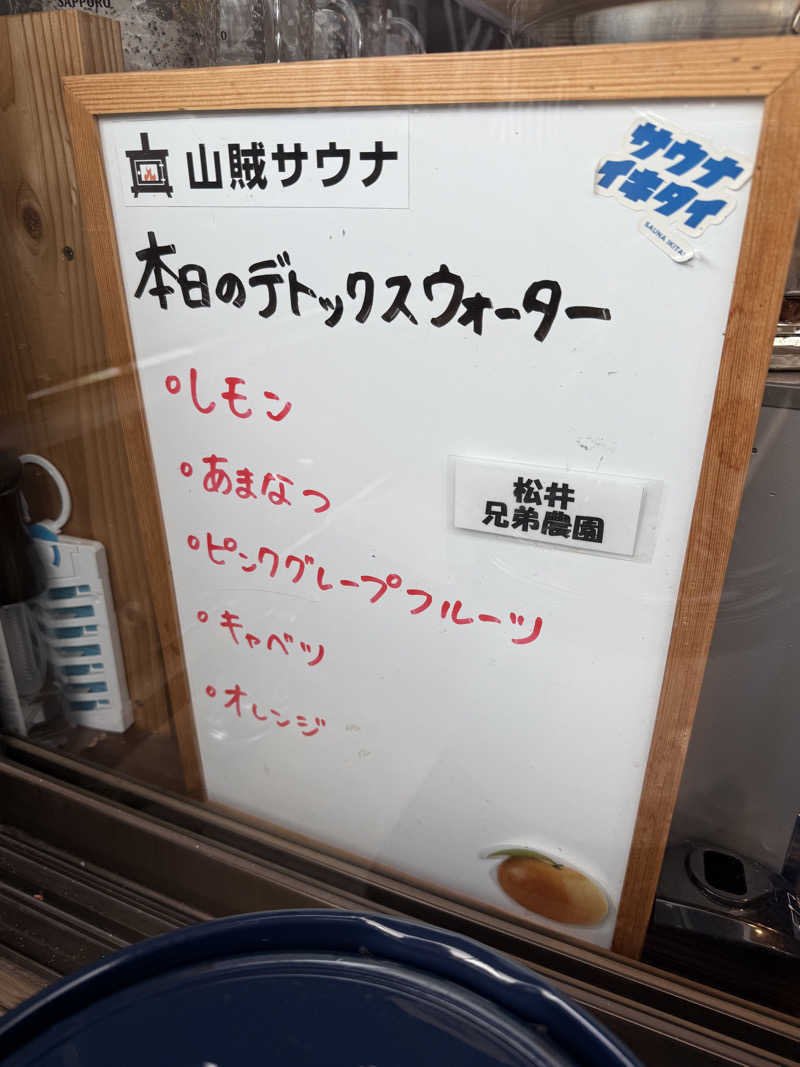 SAPPORO
山賊サウナ
サウナ
イキタイ
SAUNA IKITAI
本日のデトックスウォーター
・レモン
・あまなつ
松井
兄弟農園
・ピンクグレープフルーツ
・キャベツ
・オレンジ